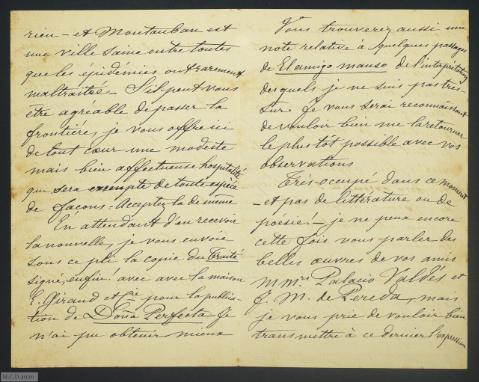 rien – et Montauban est
une ville saine entre toutes
que les épidémies ont rarement
maltraitée. S'il peut vous
être agréable de passer la
frontière, je vous offre ici
de tout cœur une modeste
mais bien affectueuse hospitalité
que sera exempte de toute espèce
de façons. Acceptez la de même
En attendant d'en recevoir
la nouvelle, je vous envoie
sous ce pli la copie du Traité
signé, enfin! avec avec la maison
E. Giraud et Cie pour la publica-
tion de Doña Perfecta. Je
n'ai pu obtenir mieux
Vous trouverez aussi une
note relative à quelques passages
de El amigo manso de l'interprétation
desquels je ne suis pas très-
sûr. Je vous serai reconnaissant
de vouloir bien me la retourner
le plus tôt possible avec vos
observations
Très-occupé dans ce moment
– et pas de littérature ou de
poésie – je ne peux encore
cette fois vous parler des
belles œuvres de vos amis
M.mrs Palacio Valdés et
J. M. de Pereda, mais
je vous prie de vouloir bien
transmettre à ce dernier l'expression